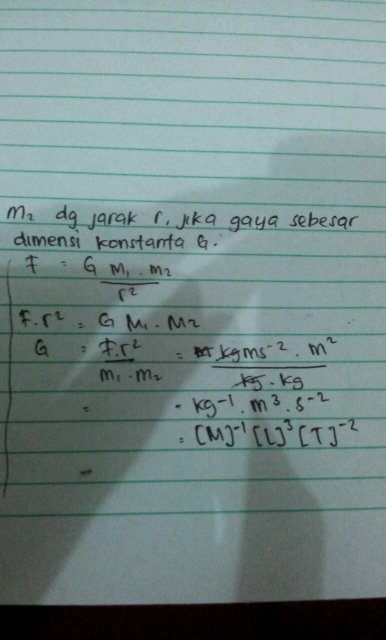 m₂ dg jarak r, jika gaya sebesar
dimensi konstanta G.
F = G m₁ . m₂ / r²
F.r² = G M₁ . M₂
G = F.r² / m₁ . m₂ = kg ms⁻² . m² / kg . kg
= = kg⁻¹ . m³ . s⁻²
= [M]⁻¹ [L]³ [T]⁻²